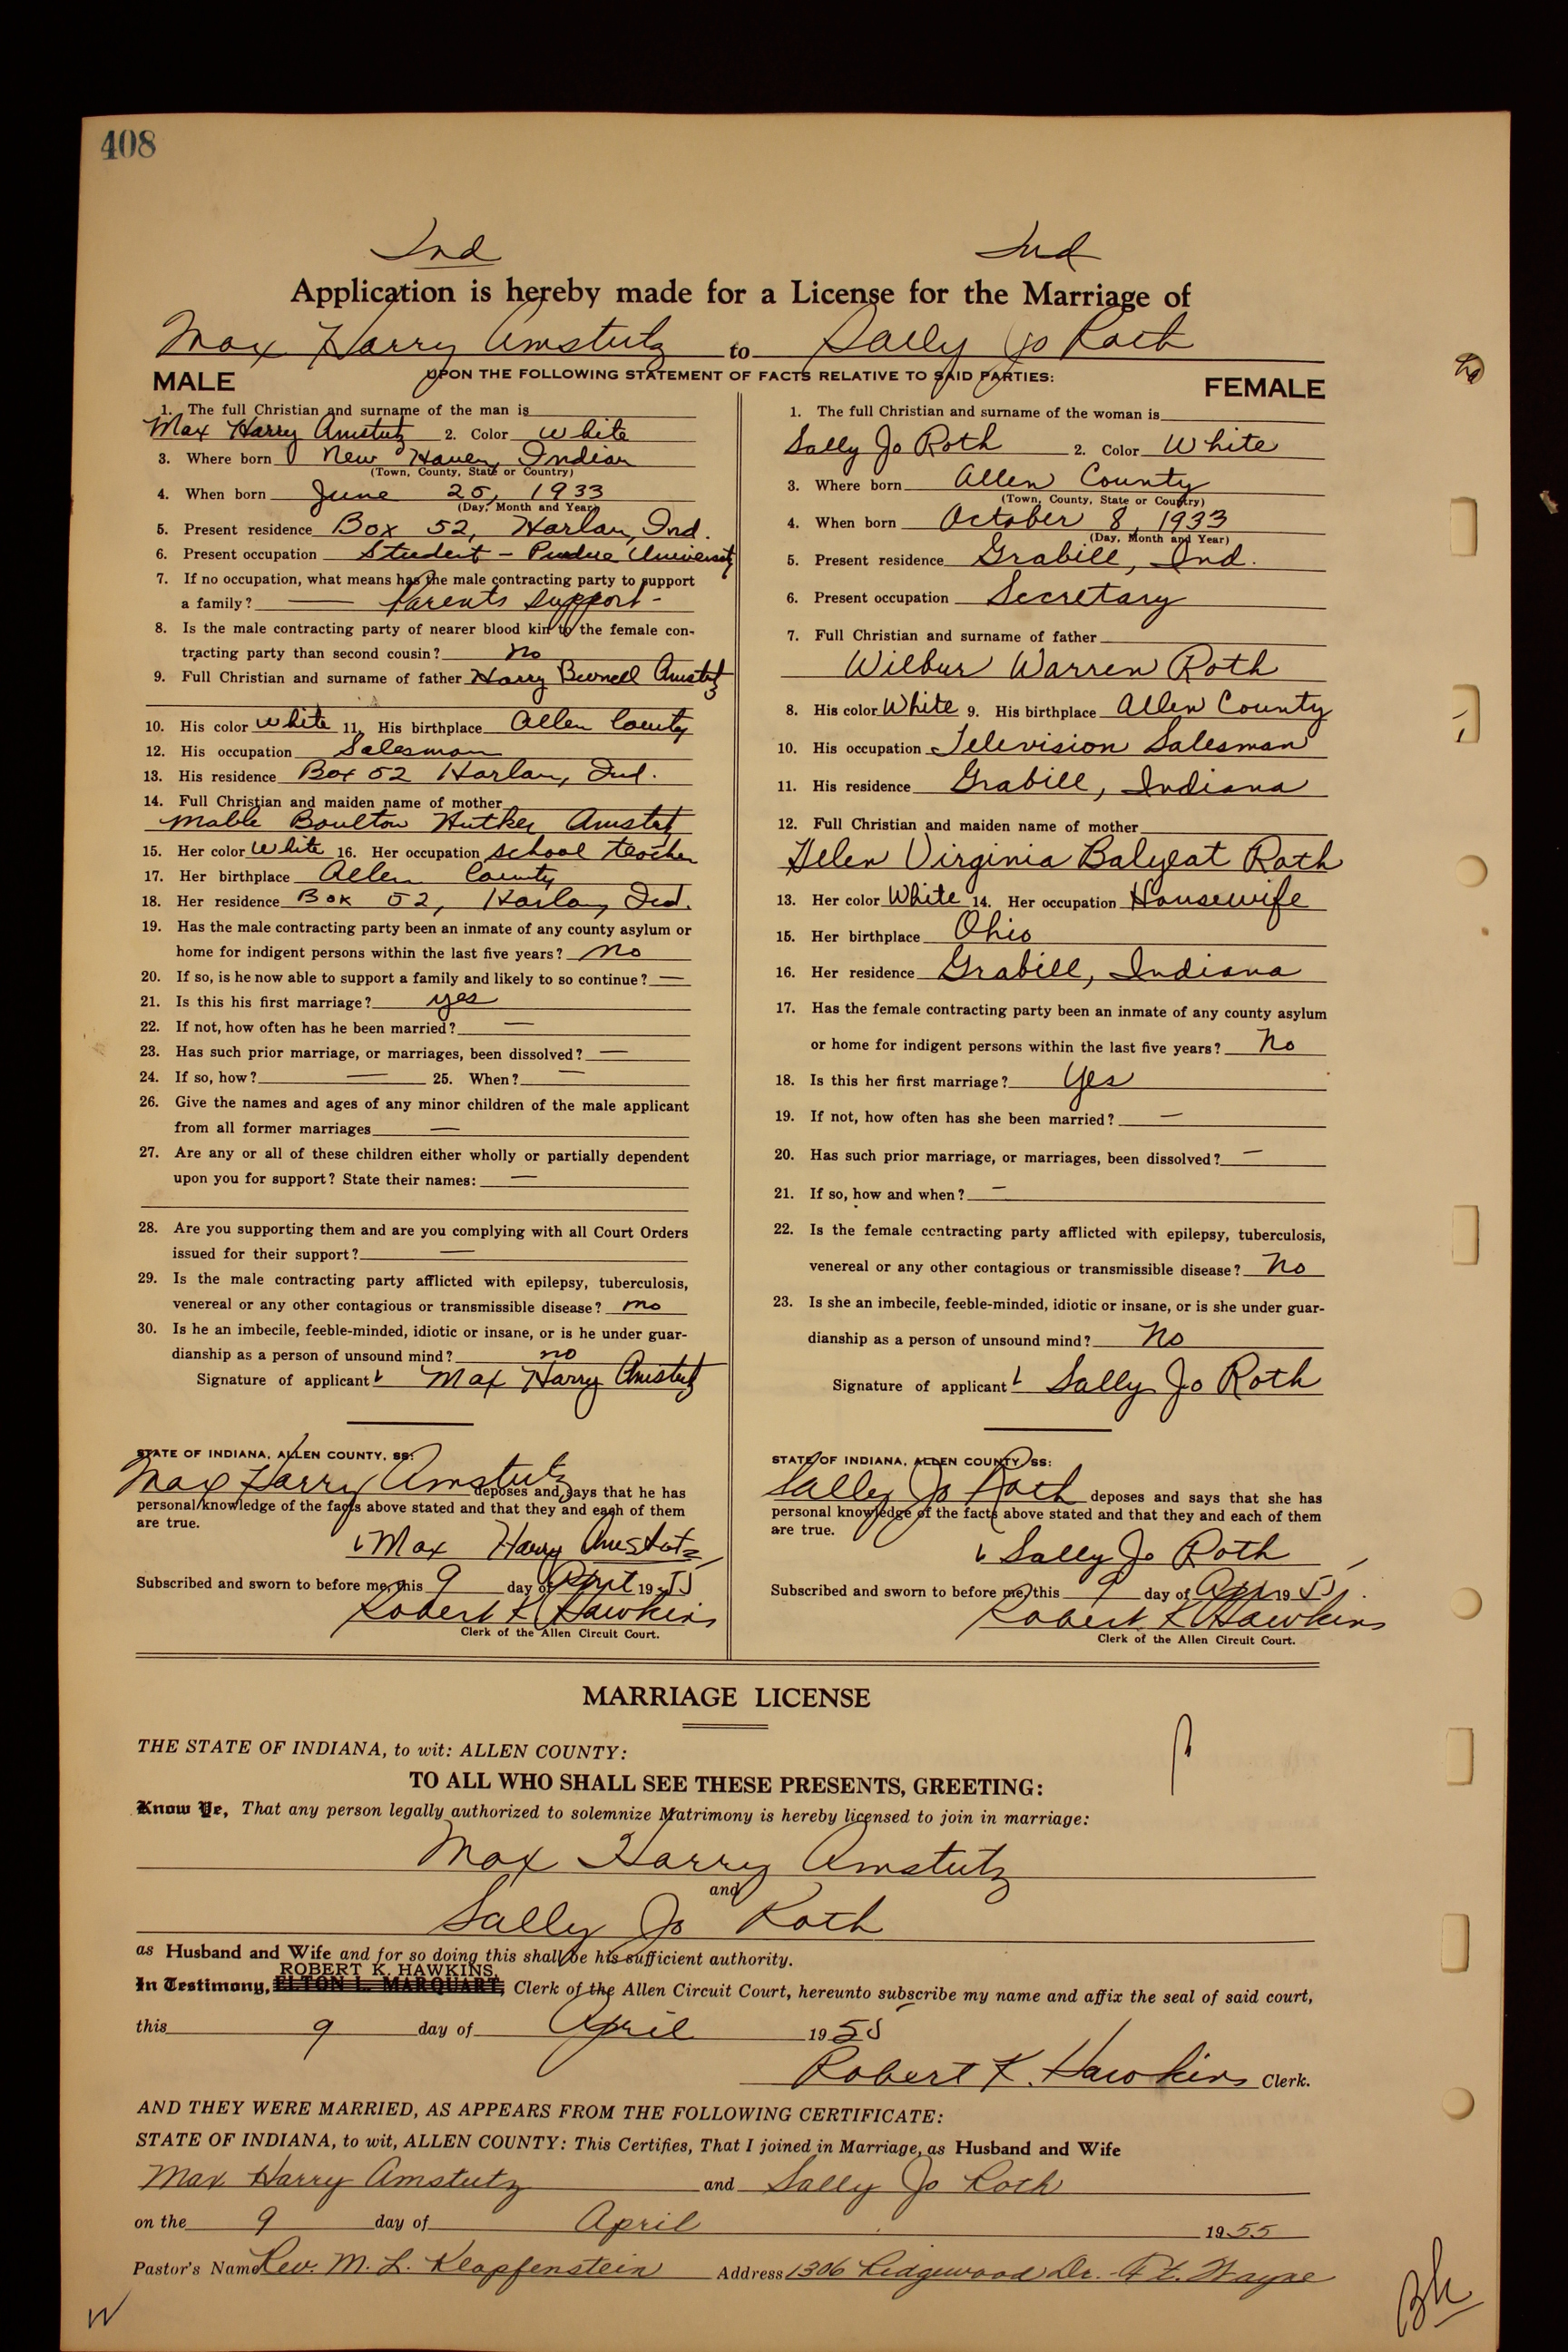 408
Ind Ind
Application is hereby made for a License for the Marriage of
Max Harry Amstutz to Sally Jo Roth
UPON THE FOLLOWING STATEMENT OF FACTS RELATIVE TO SAID PARTIES:
MALE
1. The full Christian and surname of the man is
Max Harry Amstutz 2. Color White
3. Where born New Haven, Indian
(Town, County, State or Country)
4. When born June 25, 1933
(Day, Month and Year)
5. Present residence Box 52, Harlan, Ind.
6. Present occupation Student - Purdue University
7. If no occupation, what means has the male contracting party to support
a family? — Parents support -
8. Is the male contracting party of nearer blood kin to the female con-
tracting party than second cousin? no
9. Full Christian and surname of father Harry Amstutz
10. His color white 11. His birthplace Allen County
12. His occupation Salesman
13. His residence Box 52 Harlan, Ind.
14. Full Christian and maiden name of mother
Mable Boulton Amstutz
15. Her color White 16. Her occupation school teacher
17. Her birthplace Allen County
18. Her residence Box 52, Harlan, Ind.
19. Has the male contracting party been an inmate of any county asylum or
home for indigent persons within the last five years? no
20. If so, is he now able to support a family and likely to so continue? —
21. Is this his first marriage? yes
22. If not, how often has he been married? —
23. Has such prior marriage, or marriages, been dissolved? —
24. If so, how? — 25. When? —
26. Give the names and ages of any minor children of the male applicant
from all former marriages —
27. Are any or all of these children either wholly or partially dependent
upon you for support? State their names: —
28. Are you supporting them and are you complying with all Court Orders
issued for their support? —
29. Is the male contracting party afflicted with epilepsy, tuberculosis,
venereal or any other contagious or transmissible disease? no
30. Is he an imbecile, feeble-minded, idiotic or insane, or is he under guar-
dianship as a person of unsound mind? no
Signature of applicant Max Harry Amstutz
STATE OF INDIANA, ALLEN COUNTY, SS:
Max Harry Amstutz deposes and says that he has
personal knowledge of the facts above stated and that they and each of them
are true.
Max Harry Amstutz
Subscribed and sworn to before me, this 9 day of April 1955
Robert K Hawkins
Clerk of the Allen Circuit Court.
FEMALE
1. The full Christian and surname of the woman is
Sally Jo Roth 2. Color White
3. Where born Allen County
(Town, County, State or Country)
4. When born October 8, 1933
(Day, Month and Year)
5. Present residence Grabill, Ind.
6. Present occupation Secretary
7. Full Christian and surname of father
Wilbur Warren Roth
8. His color White 9. His birthplace Allen County
10. His occupation Television Salesman
11. His residence Grabill, Indiana
12. Full Christian and maiden name of mother
Helen Virginia Balyeat Roth
13. Her color White 14. Her occupation Housewife
15. Her birthplace Ohio
16. Her residence Grabill, Indiana
17. Has the female contracting party been an inmate of any county asylum
or home for indigent persons within the last five years? No
18. Is this her first marriage? Yes
19. If not, how often has she been married? —
20. Has such prior marriage, or marriages, been dissolved? —
21. If so, how and when? —
22. Is the female contracting party afflicted with epilepsy, tuberculosis,
venereal or any other contagious or transmissible disease? No
23. Is she an imbecile, feeble-minded, idiotic or insane, or is she under guar-
dianship as a person of unsound mind? No
Signature of applicant Sally Jo Roth
STATE OF INDIANA, ALLEN COUNTY SS:
Sally Jo Roth deposes and says that she has
personal knowledge of the facts above stated and that they and each of them
are true.
Sally Jo Roth
Subscribed and sworn to before me, this 9 day of Apr 1955.
Robert K Hawkins
Clerk of the Allen Circuit Court.
MARRIAGE LICENSE
THE STATE OF INDIANA, to wit: ALLEN COUNTY:
TO ALL WHO SHALL SEE THESE PRESENTS, GREETING:
Know Ye, That any person legally authorized to solemnize Matrimony is hereby licensed to join in marriage:
Max Harry Amstutz
and
Sally Jo Roth
as Husband and Wife and for so doing this shall be his sufficient authority.
ROBERT K. HAWKINS,
In Testimony, ELTON L. MARQUART, Clerk of the Allen Circuit Court, hereunto subscribe my name and affix the seal of said court,
this 9 day of April 1955
Robert K. Hawkins Clerk.
AND THEY WERE MARRIED, AS APPEARS FROM THE FOLLOWING CERTIFICATE:
STATE OF INDIANA, to wit, ALLEN COUNTY: This Certifies, That I joined in Marriage, as Husband and Wife
Max Harry Amstutz and Sally Jo Roth
on the 9 day of April 1955
Pastor's Name Rev. M. L. Klopfenstein Address 1306 Ridgewood Dr. Ft. Wayne